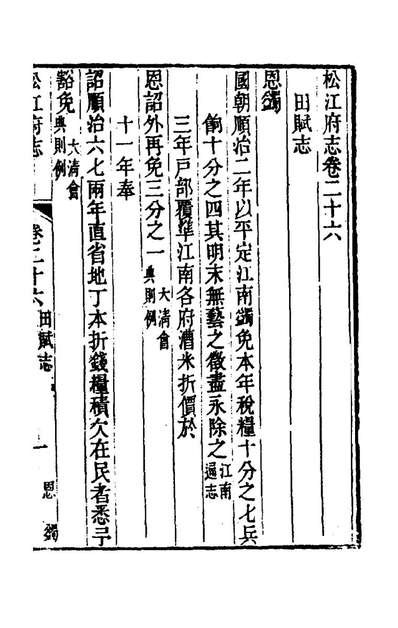 松江府志卷二十六
田賦志
恩蠲
國朝順治二年以平定江南蠲免本年稅糧十分之七兵
餉十分之四其明末無藝之徵盡永除之江南通志
三年戶部覆準江南各府漕米折價於
恩詔外再免三分之一大清會典則例
十一年奉
詔順治六七兩年直省地丁本折錢糧積欠在民者悉予
豁免大清會典則例
松江府志
卷二十六 田賦志
一
恩蠲